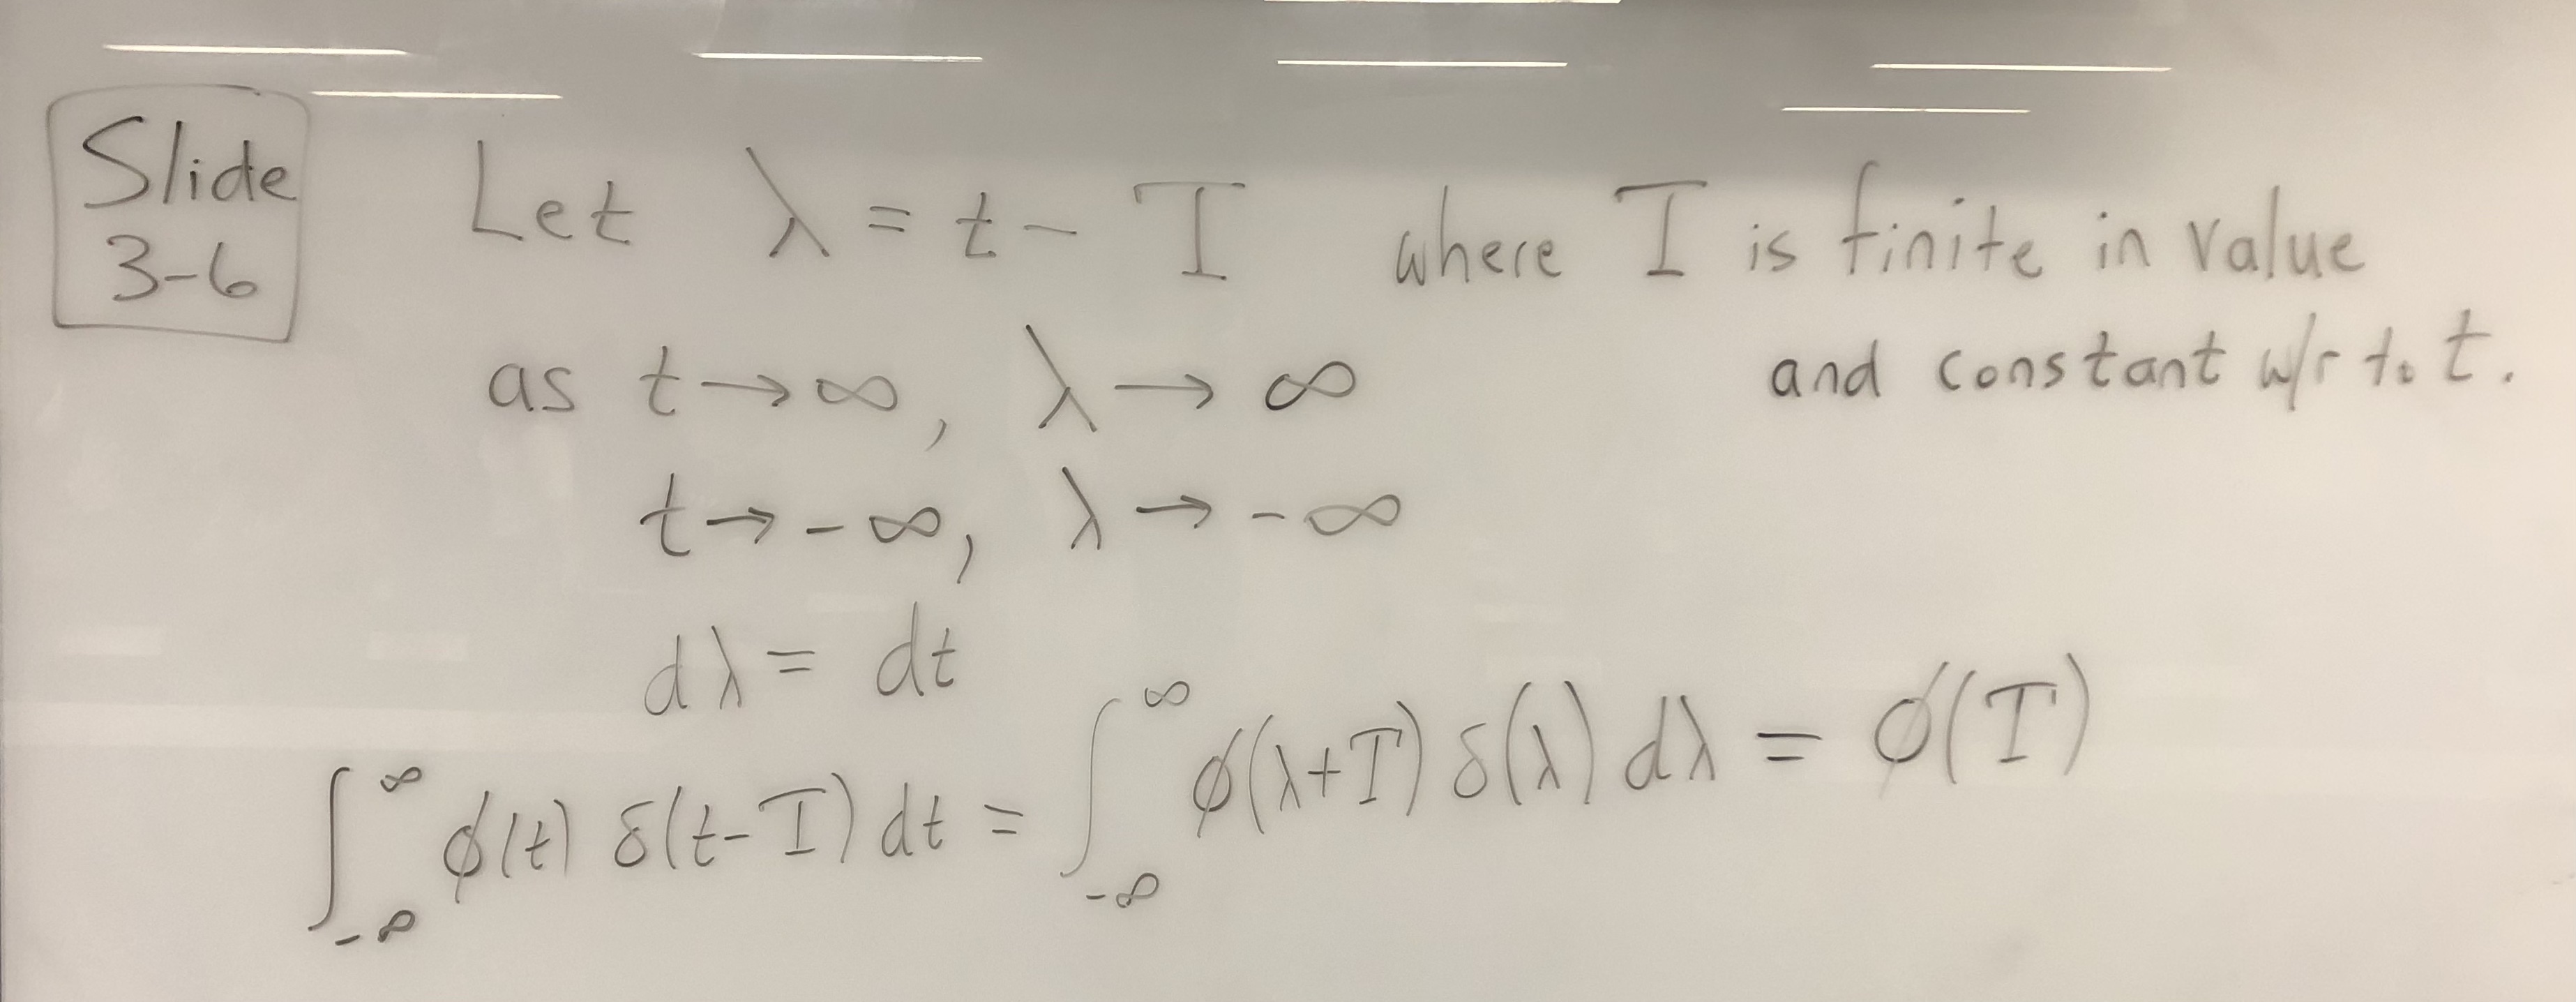 Slide
3-6
Let λ = t - T where T is finite in value
and constant w/r to t.
as t → ∞, λ → ∞
t → -∞, λ → -∞
dλ = dt
∫_{-∞}^{∞} φ(t) δ(t-T) dt = ∫_{-∞}^{∞} φ(λ+T) δ(λ) dλ = φ(T)